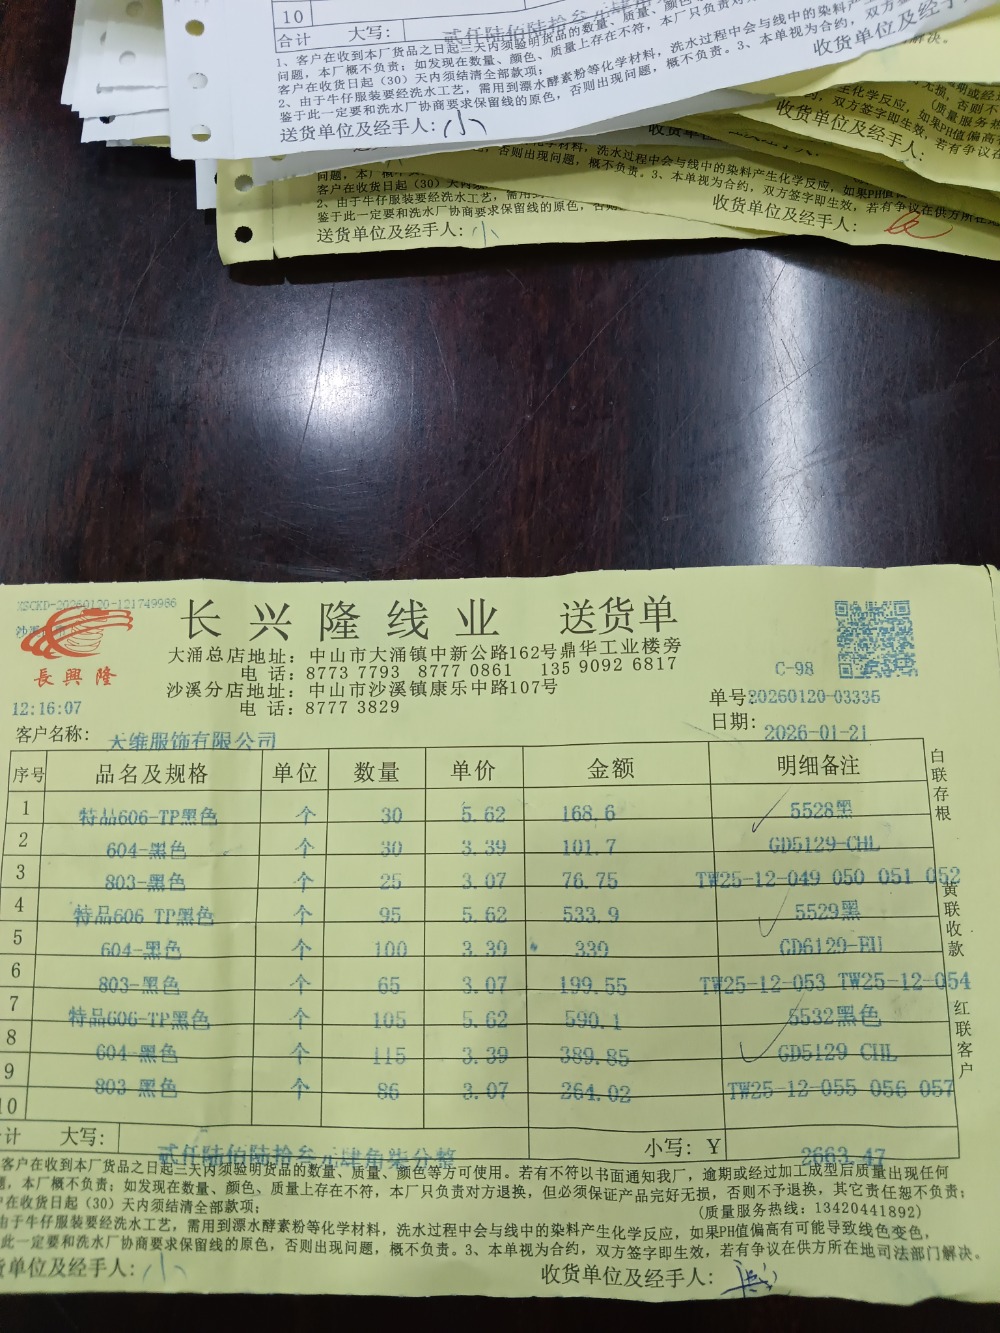 10
合计 大写： 贰仟陆佰陆拾叁元
1、客户在收到本厂货品之日起三天内须验明货品的数量、质量、颜色
问题，本厂概不负责；如发现在数量、颜色、质量上存在不符，本厂只负责对
客户在收货日起（30）天内须结清全部款项；
2、由于牛仔服装要经洗水工艺，需用到漂水酵素粉等化学材料，洗水过程中会与线中的染料产
鉴于此一定要和洗水厂协商要求保留线的原色，否则出现问题，概不负责。3、本单视为合约，双方
送货单位及经手人：小
收货单位及经手
客户在收货日起（30）天内
2、由于牛仔服装要经洗水工艺，需用到
洗水过程中会与线中的染料产生化学反应，如果PH值偏
鉴于此一定要和洗水厂协商要求保留线的原色，否则
否则出现问题，概不负责。3、本单视为合约，双方签字即生效，若有争议在供方所在
送货单位及经手人：小
收货单位及经手人：
收货单位及经手人：
XSCKD-20260120-121749966
长兴隆线业 送货单
長興隆
大涌总店地址：中山市大涌镇中新公路162号鼎华工业楼旁
电 话：8773 7793 8777 0861 135 9092 6817
沙溪分店地址：中山市沙溪镇康乐中路107号
电 话：8777 3829
C-98
12:16:07
单号：20260120-03335
日期：2026-01-21
客户名称：天维服饰有限公司
序号 品名及规格 单位 数量 单价 金额 明细备注
1 特品606-TP黑色 个 30 5.62 168.6 5528黑
2 604-黑色 个 30 3.39 101.7 GD5129-CHL
3 803-黑色 个 25 3.07 76.75 TW25-12-049 050 051 052
4 特品606 TP黑色 个 95 5.62 533.9 5529黑
5 604-黑色 个 100 3.39 339 GD6129-EU
6 803-黑色 个 65 3.07 199.55 TW25-12-053 TW25-12-054
7 特品606-TP黑色 个 105 5.62 590.1 5532黑色
8 604-黑色 个 115 3.39 389.85 GD5129 CHL
9 803 黑色 个 86 3.07 264.02 TW25-12-055 056 057
10
计 大写： 贰仟陆佰陆拾叁元肆角柒分整 小写：￥ 2663.47
白联存根
黄联收款
红联客户
客户在收到本厂货品之日起三天内须验明货品的数量、质量、颜色等方可使用。若有不符以书面通知我厂，逾期或经过加工成型后质量出现任何
题，本厂概不负责；如发现在数量、颜色、质量上存在不符，本厂只负责对方退换，但必须保证产品完好无损，否则不予退换，其它责任恕不负责；
户在收货日起（30）天内须结清全部款项；
（质量服务热线：13420441892）
由于牛仔服装要经洗水工艺，需用到漂水酵素粉等化学材料，洗水过程中会与线中的染料产生化学反应，如果PH值偏高有可能导致线色变色，
此一定要和洗水厂协商要求保留线的原色，否则出现问题，概不负责。3、本单视为合约，双方签字即生效，若有争议在供方所在地司法部门解决。
货单位及经手人：小
收货单位及经手人：